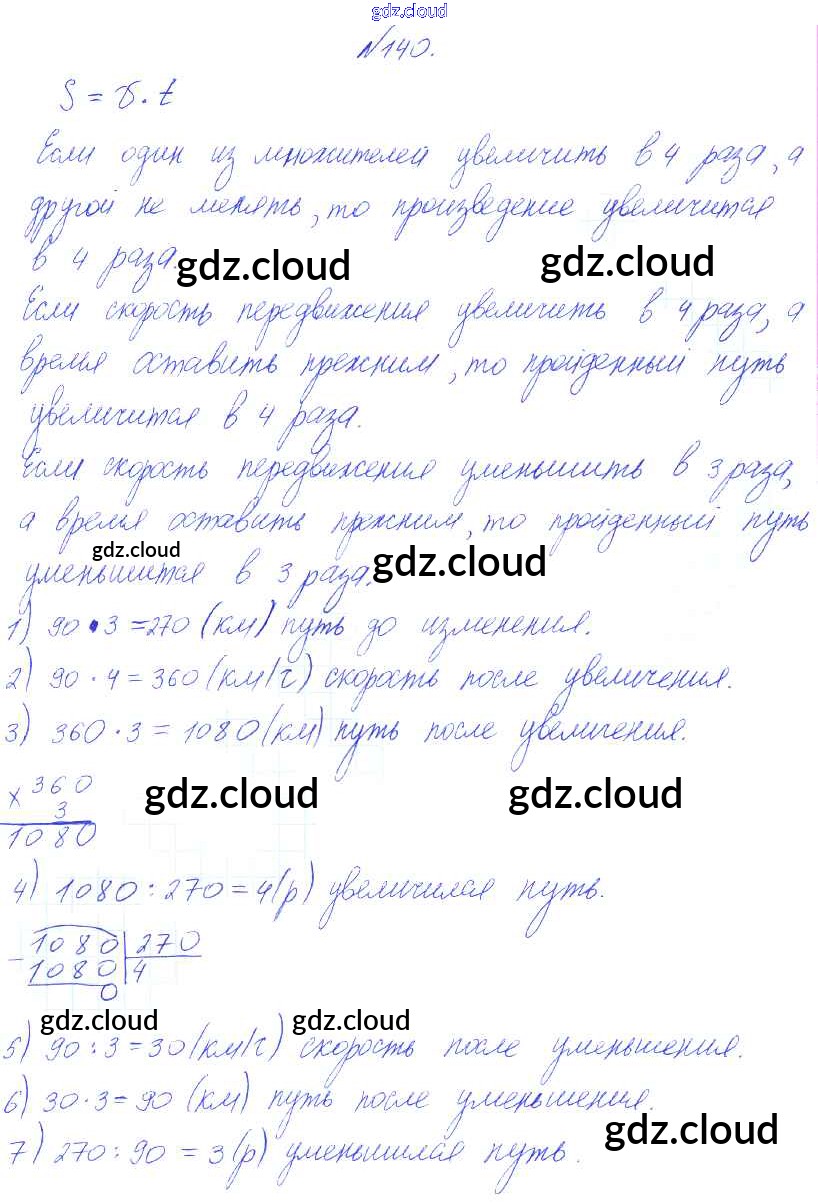 gdz.cloud
№140.
S = v · t
Если один из множителей увеличить в 4 раза, а
другой не менять, то произведение увеличится
в 4 раза.
gdz.cloud
gdz.cloud
Если скорость передвижения увеличить в 4 раза, а
время оставить прежним, то пройденный путь
увеличится в 4 раза.
Если скорость передвижения уменьшить в 3 раза,
а время оставить прежним, то пройденный путь
gdz.cloud
gdz.cloud
уменьшится в 3 раза.
1) 90 · 3 = 270 (км) путь до изменения.
2) 90 · 4 = 360 (км/ч) скорость после увеличения.
3) 360 · 3 = 1080 (км) путь после увеличения.
× 360
3
1080
gdz.cloud
gdz.cloud
4) 1080 : 270 = 4 (р) увеличился путь.
- 1080 | 270
1080 | 4
0
gdz.cloud
gdz.cloud
5) 90 : 3 = 30 (км/ч) скорость после уменьшения.
6) 30 · 3 = 90 (км) путь после уменьшения.
gdz.cloud
7) 270 : 90 = 3 (р) уменьшился путь.